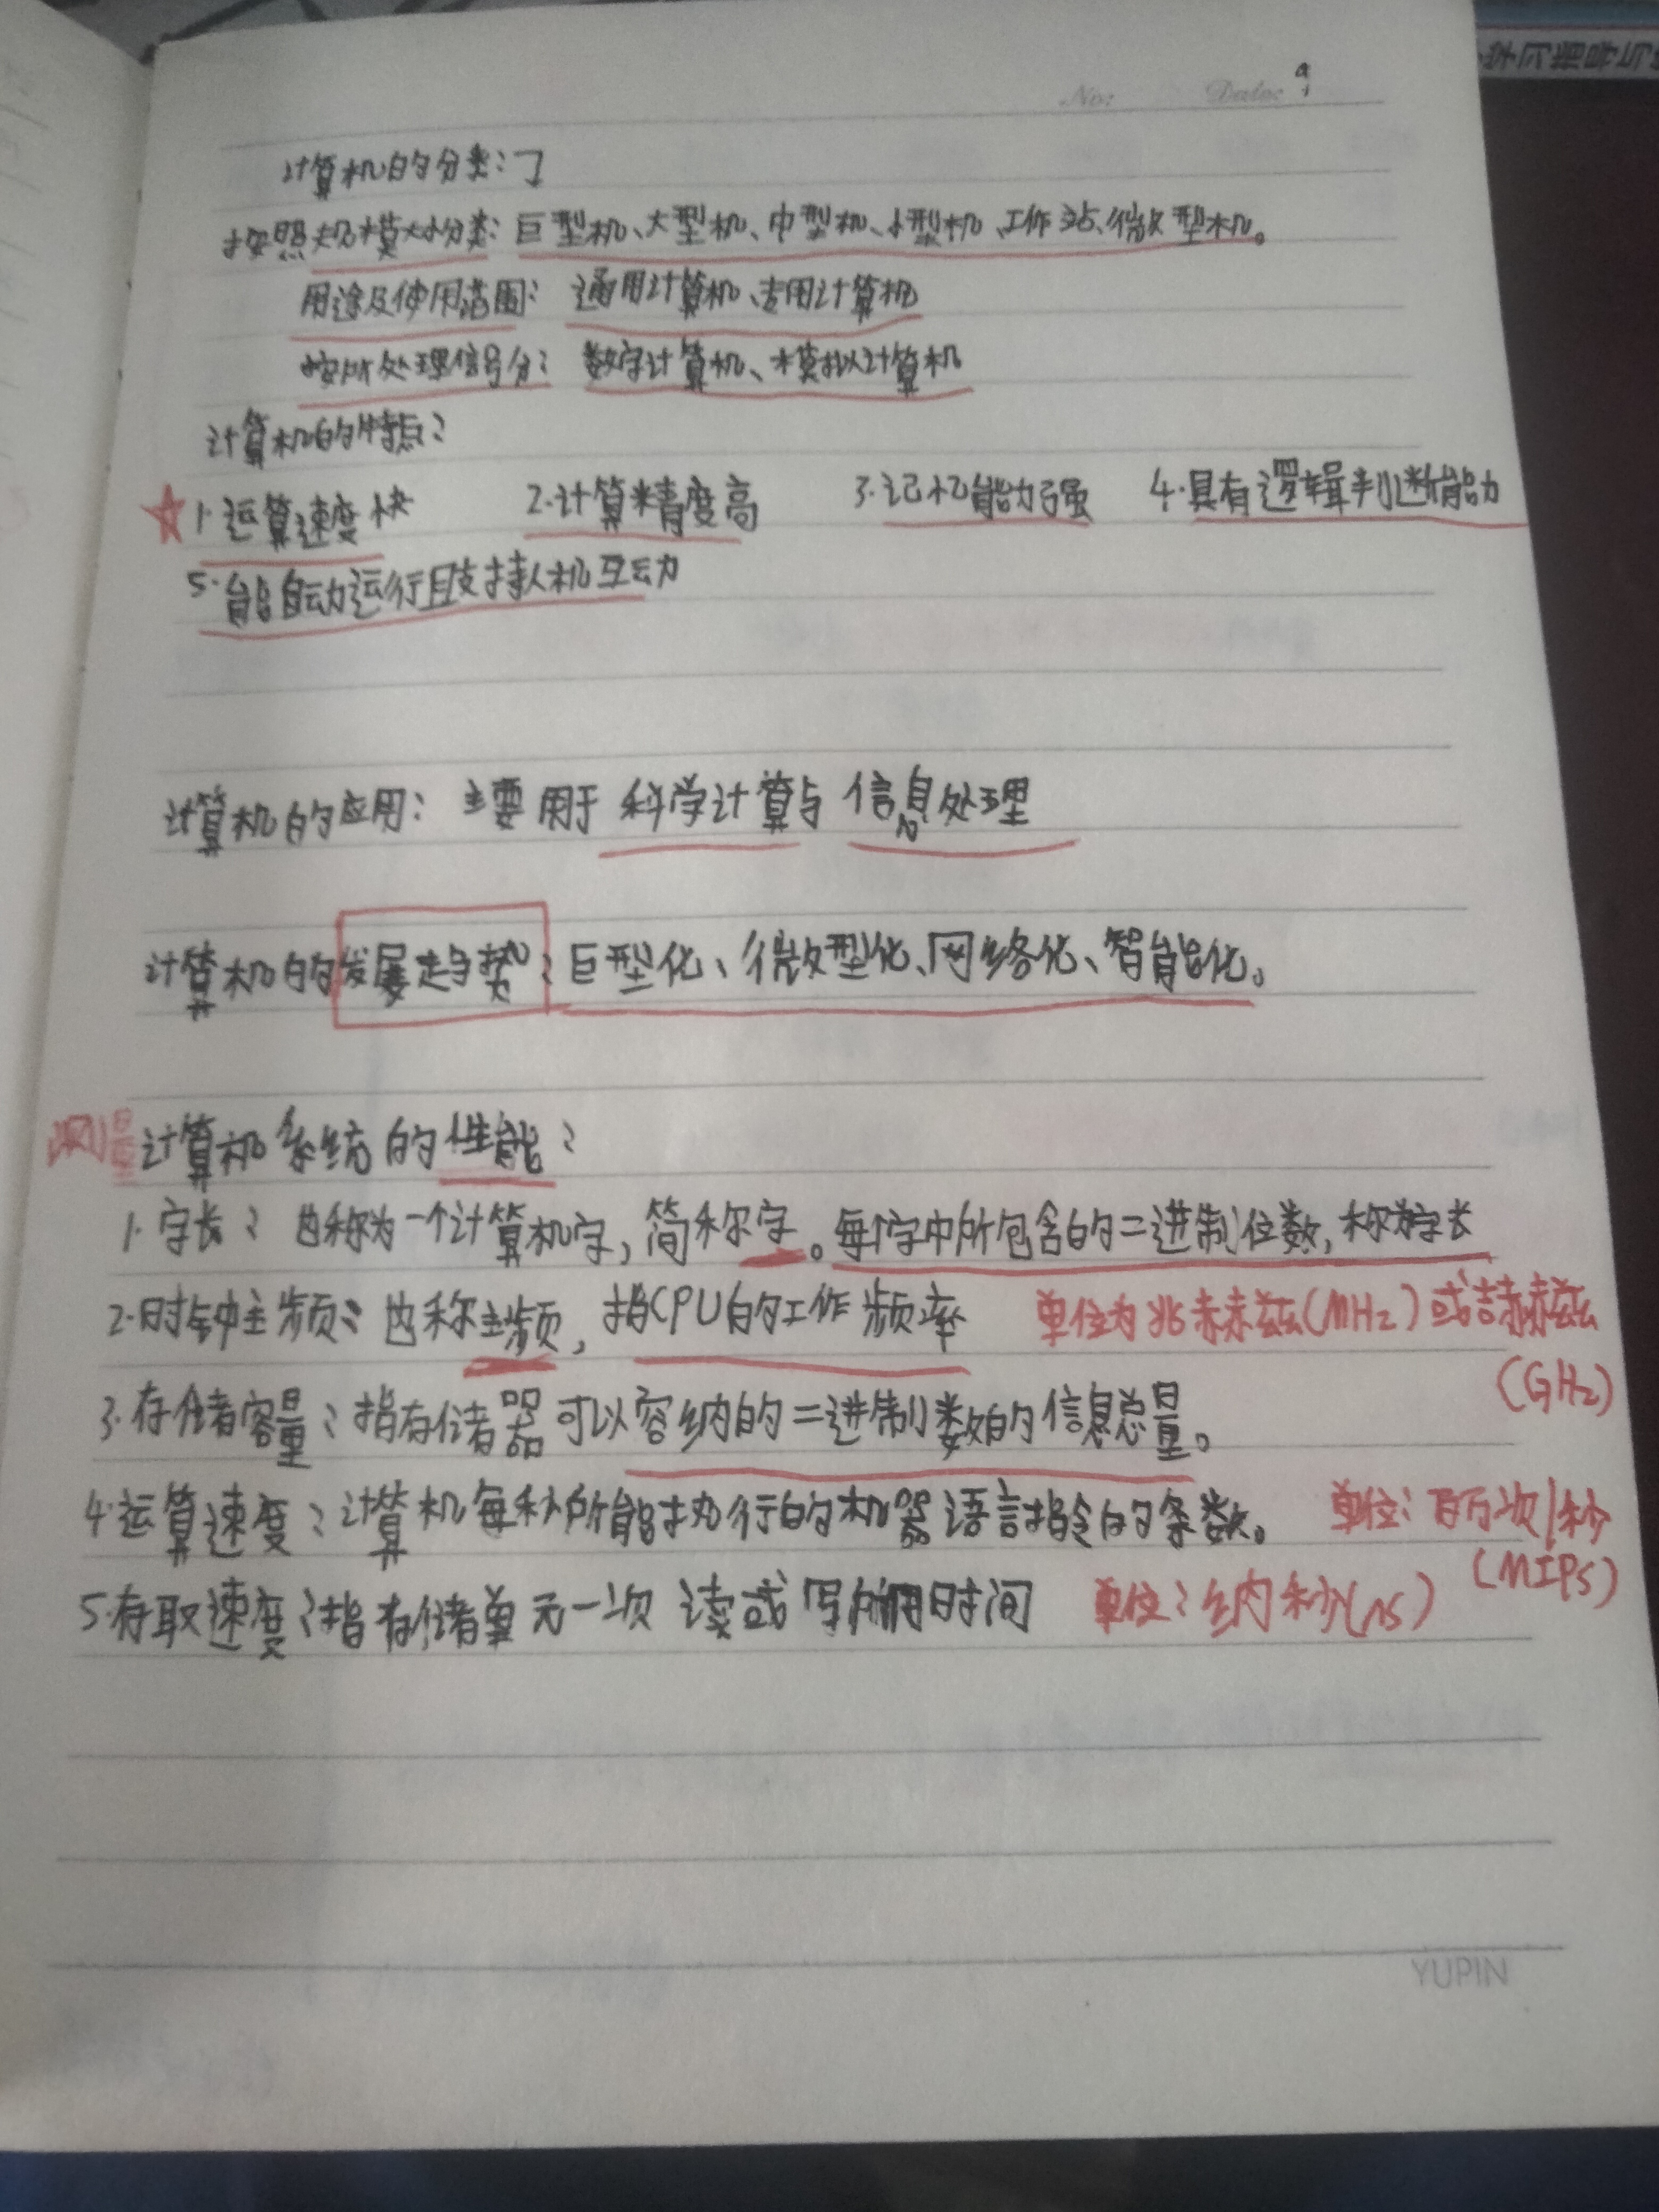 学习指导与
No: Date: 9
计算机的分类:
按照规模大小分类: 巨型机、大型机、中型机、小型机、工作站、微型机。
用途及使用范围: 通用计算机、专用计算机
按所处理信号分: 数字计算机、模拟计算机
计算机的特点:
1.运算速度快 2.计算精度高 3.记忆能力强 4.具有逻辑判断能力
5.能自动运行且支持人机互动
计算机的应用: 主要用于科学计算与信息处理
计算机的发展趋势: 巨型化、微型化、网络化、智能化。
测量计算机系统的性能:
1.字长: 也称为一个计算机字,简称字。每个字中所包含的二进制位数,称为字长
2.时钟主频: 也称主频,指CPU的工作频率 单位为兆赫兹(MHz)或吉赫兹
(GHz)
3.存储容量: 指存储器可以容纳的二进制数的信息总量。
4.运算速度: 计算机每秒所能执行的机器语言指令的条数。 单位: 百万次/秒
(MIPS)
5.存取速度: 指存储单元一次读或写所用时间 单位: 纳秒(ns)
YUPIN